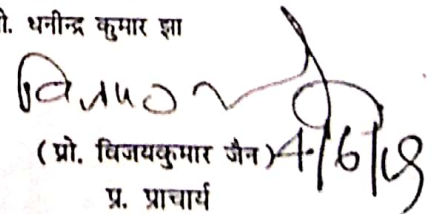 ो. धनीन्द्र कुमार झा
(प्रो. विजयकुमार जैन) 4/6/
प्र. प्राचार्य